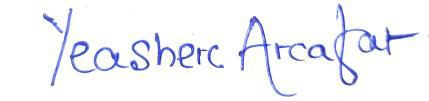 Yeasherc Arcafat